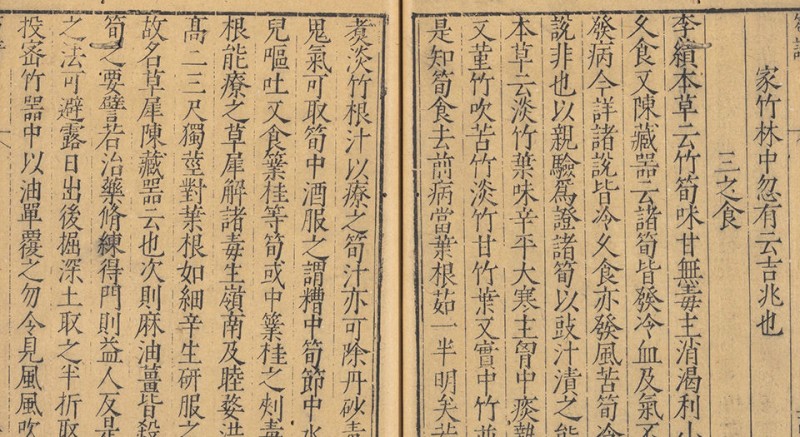 家竹林中忽有云吉兆也
三之食
李績本草云竹筍味甘無毒主消渴利
久食又陳藏器云諸筍皆發冷血及氣不
發病今詳諸說皆冷久食亦發風苦筍冷
說非也以親驗爲證諸筍以豉汁漬之能
本草云淡竹葉味辛平大寒主胷中痰熱
又菫竹吹苦竹淡竹甘竹葉又實中竹並
是知筍食去前病當葉根茹一半明矣
煮淡竹根汁以療之筍汁亦可除丹砂毒
鬼氣可取筍中酒服之謂糟中筍節中水
兒嘔吐又食䈽桂等筍或中䈽桂之刾毒
根能療之草犀解諸毒生嶺南及睦婺洪
髙二三尺獨莖對葉根如細辛生研服之
故名草犀陳藏器云也次則麻油薑皆殺
筍之要譬若治藥脩練得門則益人反是
之法可避露日出後掘深土取之半折取
投密竹器中以油單覆之勿令見風風吹